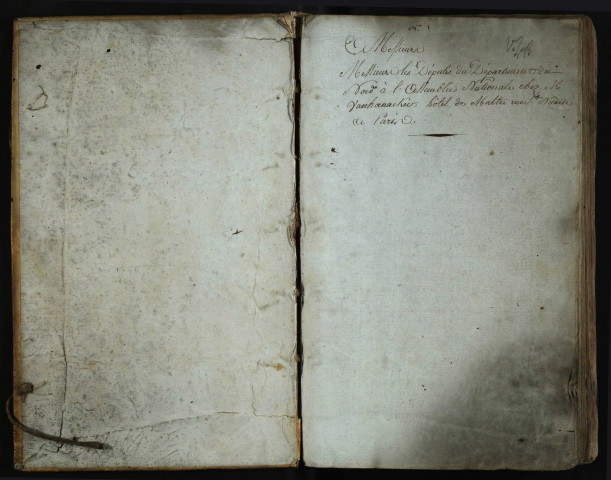 A Messieurs
Messieurs les Députés du Département du
Nord à l'Assemblée Nationale chez M.
Vanhœnacker hôtel de Malthe rue
A Paris.